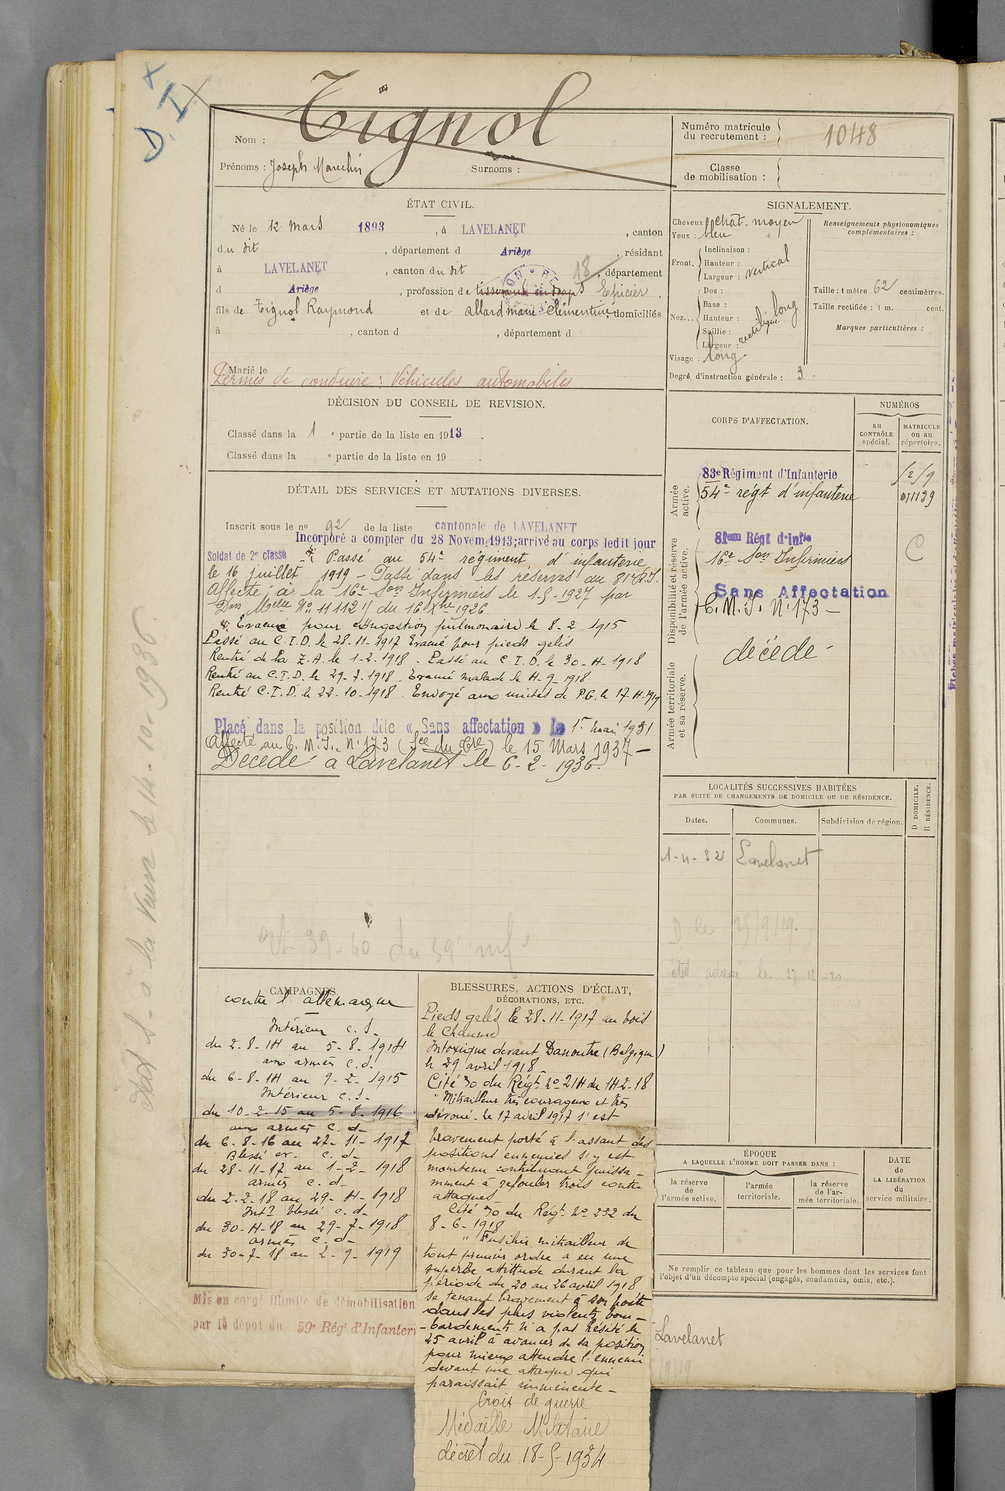 D. I
Tignol
Nom :
Prénoms : Joseph
Surnoms :
Numéro matricule
du recrutement :
1048
Classe
de mobilisation :
ÉTAT CIVIL.
Né le 12 Mars 1893, à LAVELANET, canton
du dit, département d Ariège, résidant
à LAVELANET, canton du dit, département
18
d Ariège, profession de Epicier,
fils de Tignol Raymond et de allard marie Clémentine domiciliés
à , canton d , département d
Marié le
Permis de conduire : Véhicules automobiles
SIGNALEMENT.
Cheveux chat. moyen
Yeux : bleu
Front. Inclinaison :
Hauteur : vertical
Largeur :
Nez... Dos :
Base :
Hauteur : long
Saillie : rectiligne
Largeur :
Visage : long
Degré d'instruction générale : 3.
Renseignements physionomiques
complémentaires :
Taille : 1 mètre 62 centimètres.
Taille rectifiée : 1 m. cent.
Marques particulières :
DÉCISION DU CONSEIL DE REVISION.
Classé dans la 1 e partie de la liste en 1913.
Classé dans la e partie de la liste en 19 .
DÉTAIL DES SERVICES ET MUTATIONS DIVERSES.
Inscrit sous le no 92 de la liste cantonale de LAVELANET
Incorporé à compter du 28 Novem. 1913; arrivé au corps ledit jour
Soldat de 2e classe Passé au 54e régiment d'infanterie
le 16 juillet 1919 - Passé dans les réserves au 81e R.I.
Affecté à la 16e Son Infirmiers le 1-5-1927 par
du 16 Xbre 1926.
Evacué pour congestion pulmonaire le 8-2-1915
Passé au C.I.D. le 28-11-1917 Evacué pour pieds gelés
Rentré de la Z.A. le 1-2-1918. Passé au C.I.D. le 30-4-1918
Rentré au C.I.D. le 29-7-1918. Evacué malade le 4-9-1918
Rentré C.I.D. le 22-10-1918. Envoyé aux unités de P.G. le 17-4-1919
Placé dans la position dite « Sans affectation » le 1er mai 1931
Affecté au C.M.I. No 173 le 15 Mars 1937 -
Décédé à Lavelanet le 6-2-1936.
CORPS D'AFFECTATION.
NUMÉROS
AU CONTRÔLE spécial.
MATRICULE OU AU répertoire.
Armée active.
83e Régiment d'Infanterie
54e régt d'infanterie
Disponibilité et réserve de l'armée active.
81em Régt d'Infie
16e Son Infirmiers
C
Sans Affectation
C.M.I. No 173 -
Armée territoriale et sa réserve.
décédé -
LOCALITÉS SUCCESSIVES HABITÉES
PAR SUITE DE CHANGEMENTS DE DOMICILE OU DE RÉSIDENCE.
Dates.
Communes.
Subdivision de région.
D DOMICILE.
R RÉSIDENCE.
1-4-32 Lavelanet
D le 25/9/19.
CAMPAGNES.
contre l'allemagne
Intérieur C.S.
du 2-8-14 au 5-8-1914
aux armées c.d.
du 6-8-14 au 9-2-1915
Intérieur C.S.
du 10-2-15 au 5-8-1916
aux armées c.d.
du 6-8-16 au 27-11-1917
Blessé ev. c.d.
du 28-11-17 au 1-2-1918
armées c.d.
du 2-2-18 au 29-4-1918
Intr blessé c.d.
du 30-4-18 au 29-7-1918
armées c.d.
du 30-7-18 au 2-9-1919
Mis en congé illimité de démobilisation
par le dépôt du 59e Régt d'Infanterie
BLESSURES, ACTIONS D'ÉCLAT,
DÉCORATIONS, ETC.
Pieds gelés le 28-11-1917 au bois
le Chaume
Intoxiqué devant Danoutre (Belgique)
le 29 avril 1918
Cité du Régt No 214 du 14-2-18
"Mitrailleur très courageux et très
dévoué. le 17 avril 1917 s'est
bravement porté à l'assaut des
positions ennemies s'y est
maintenu contribuant puissam-
ment à refouler trois contre
attaques.
Cité du Régt No 232 du
8-6-1918
"Fusilier mitrailleur de
tout premier ordre a eu une
superbe attitude durant la
période du 20 au 26 avril 1918
se tenant bravement à son poste
dans les plus violents bom-
bardements n'a pas hésité le
25 avril à avancer de sa position
pour mieux attendre l'ennemi
devant une attaque qui
paraissait imminente -
Croix de guerre
Médaille Militaire
décret du 18-5-1934
ÉPOQUE
A LAQUELLE L'HOMME DOIT PASSER DANS :
la réserve de l'armée active.
l'armée territoriale.
la réserve de l'armée territoriale.
DATE
de
LA LIBÉRATION
du
service militaire.
Ne remplir ce tableau que pour les hommes dont les services font
l'objet d'un décompte spécial (engagés, condamnés, omis, etc.).
Lavelanet